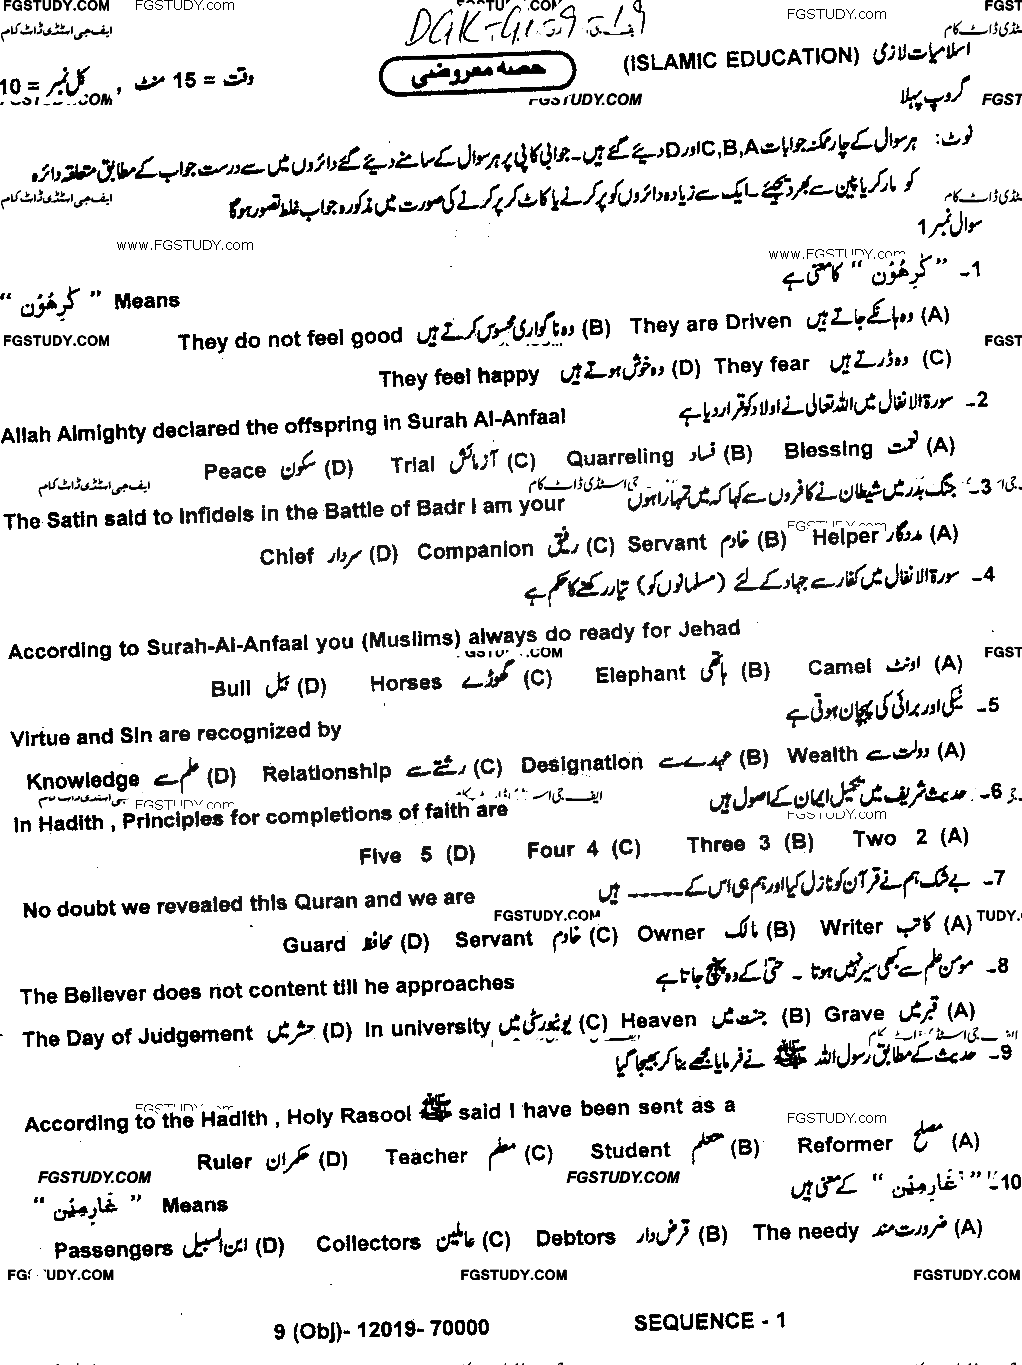 FGSTUDY.COM FGSTUDY.COM
DGK-G1-9-19
FGSTUDY.com
ایف جی اسٹڈی ڈاٹ کام
اسلامیات لازمی (ISLAMIC EDUCATION)
حصہ معروضی
وقت = 15 منٹ ، کل نمبر = 10
گروپ پہلا
FGSTUDY.COM
نوٹ: ہر سوال کے چار ممکنہ جوابات C,B,A اور D دیئے گئے ہیں۔ جوابی کاپی پر ہر سوال کے سامنے دیئے گئے دائروں میں سے درست جواب کے مطابق متعلقہ دائرہ
کو مارکر یا پین سے بھر دیجئے۔ ایک سے زیادہ دائروں کو پر کرنے یا کاٹ کر پر کرنے کی صورت میں مذکورہ جواب غلط تصور ہوگا
ایف جی اسٹڈی ڈاٹ کام
سوال نمبر 1
www.FGSTUDY.com www.FGSTUDY.com
1۔ " كٰرِهُوْن " کا معنی ہے
" كٰرِهُوْن " Means
(A) وہ ہانکے جاتے ہیں They are Driven (B) وہ ناگواری محسوس کرتے ہیں They do not feel good
FGSTUDY.COM
(C) وہ ڈرتے ہیں They fear (D) وہ خوش ہوتے ہیں They feel happy
2۔ سورۃ الانفال میں اللہ تعالیٰ نے اولاد کو قرار دیا ہے
Allah Almighty declared the offspring in Surah Al-Anfaal
(A) نعمت Blessing (B) فساد Quarreling (C) آزمائش Trial (D) سکون Peace
ایف جی اسٹڈی ڈاٹ کام
3۔ جنگ بدر میں شیطان نے کافروں سے کہا کہ میں تمہارا ہوں
The Satin said to Infidels in the Battle of Badr I am your
(A) مددگار Helper (B) خادم Servant (C) رفیق Companion (D) سردار Chief
4۔ سورۃ الانفال میں کفار سے جہاد کے لئے (مسلمانوں کو) تیار رکھنے کا حکم ہے
According to Surah-Al-Anfaal you (Muslims) always do ready for Jehad
(A) اونٹ Camel (B) ہاتھی Elephant (C) گھوڑے Horses (D) بیل Bull
5۔ نیکی اور برائی کی پہچان ہوتی ہے
Virtue and Sin are recognized by
(A) دولت سے Wealth (B) عہدے سے Designation (C) رشتے سے Relationship (D) علم سے Knowledge
FGSTUDY.com
6۔ حدیث شریف میں تکمیل ایمان کے اصول ہیں
In Hadith , Principles for completions of faith are
(A) 2 Two (B) 3 Three (C) 4 Four (D) 5 Five
7۔ بے شک ہم نے قرآن کو نازل کیا اور ہم ہی اس کے ----- ہیں
No doubt we revealed this Quran and we are
FGSTUDY.COM
(A) کاتب Writer (B) مالک Owner (C) خادم Servant (D) محافظ Guard
8۔ مومن علم سے کبھی سیر نہیں ہوتا ۔ حتیٰ کے وہ پہنچ جاتا ہے
The Believer does not content till he approaches
(A) قبر میں Grave (B) جنت میں Heaven (C) یونیورسٹی میں In university (D) حشر میں The Day of Judgement
9۔ حدیث کے مطابق رسول اللہ ﷺ نے فرمایا مجھے بنا کر بھیجا گیا
According to the Hadith , Holy Rasool ﷺ said I have been sent as a
FGSTUDY.com
(A) مصلح Reformer (B) متعلم Student (C) معلم Teacher (D) حکمران Ruler
FGSTUDY.COM FGSTUDY.COM
10۔ " غَارِمِيْن " کے معنی ہیں
" غَارِمِيْن " Means
(A) ضرورت مند The needy (B) قرض دار Debtors (C) عاملین Collectors (D) ابن السبیل Passengers
FGSTUDY.COM FGSTUDY.COM FGSTUDY.COM
9 (Obj)- 12019- 70000 SEQUENCE - 1